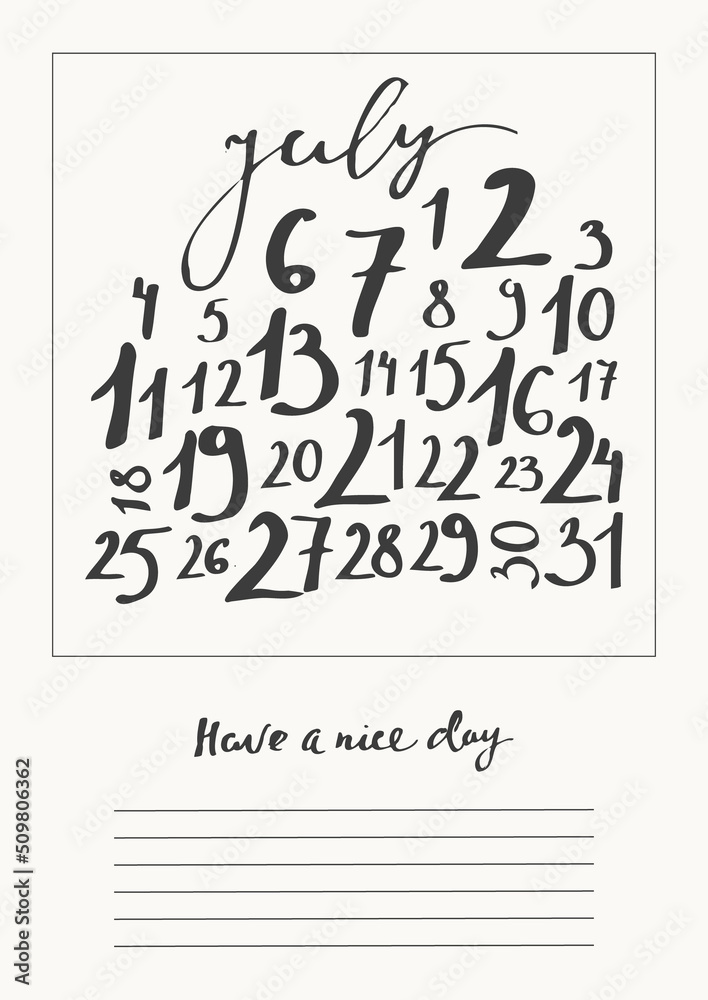 july
1 2 3
4 5 6 7 8 9 10
11 12 13 14 15 16 17
18 19 20 21 22 23 24
25 26 27 28 29 30 31
Have a nice day
Adobe Stock | #509806362